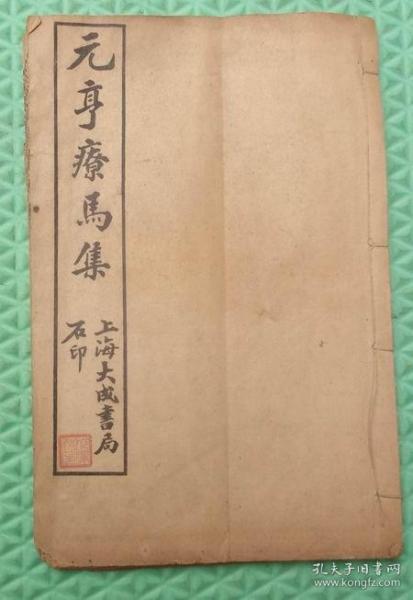 元亨療馬集
上海大成書局
石印
孔夫子旧书网
www.kongfz.com